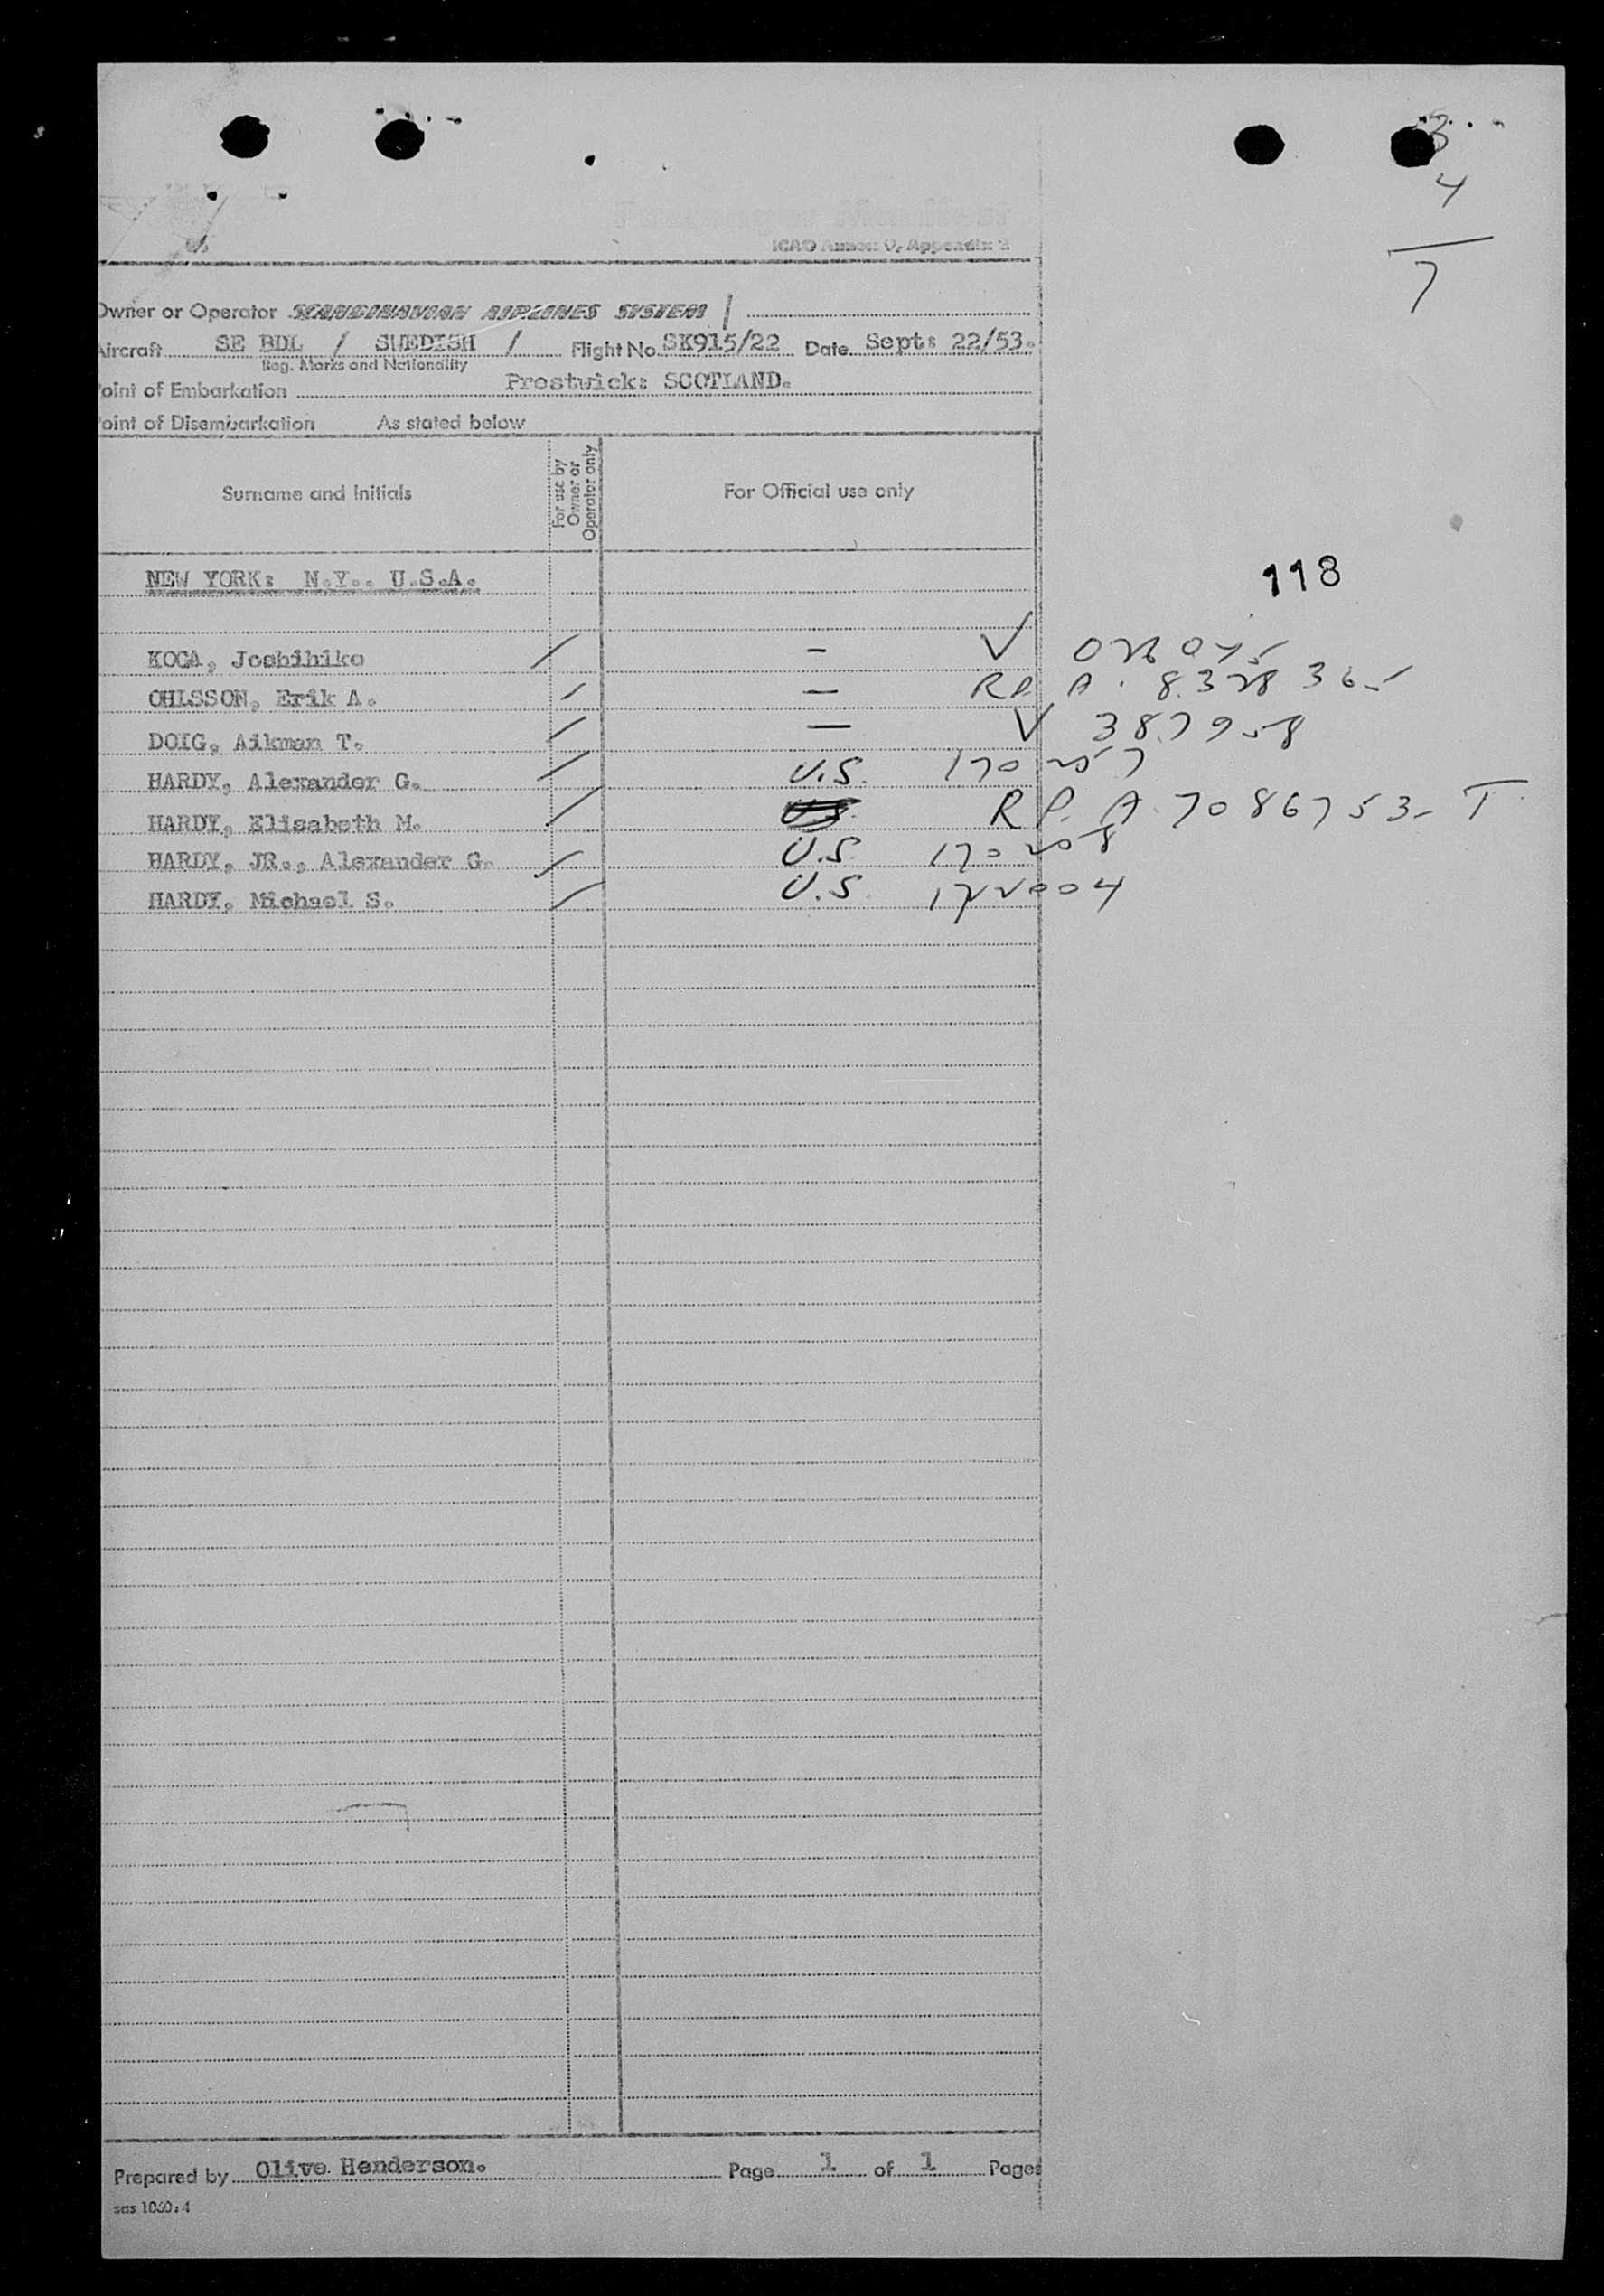 3
4
7
ICAO Annex 9, Appendix 2
Owner or Operator SCANDINAVIAN AIRLINES SYSTEM /
Aircraft SE BDL / SWEDISH / Flight No. SK915/22 Date Sept: 22/53.
Reg. Marks and Nationality
Point of Embarkation Prestwick: SCOTLAND.
Point of Disembarkation As stated below
Surname and Initials For use by Owner or Operator only For Official use only
NEW YORK: N.Y.. U.S.A.
118
KOGA, Joshihiko / — V
OHLSSON, Erik A. / — R.P. A. 8328365
DOIG, Aikman T. / — V 387958
HARDY, Alexander G. / U.S. 170257
HARDY, Elisabeth M. / R.P. A. 7086753- T
HARDY, JR., Alexander G. / U.S. 170258
HARDY, Michael S. / U.S. 122004
Prepared by Olive Henderson. Page 1 of 1 Pages
sas 1030:4